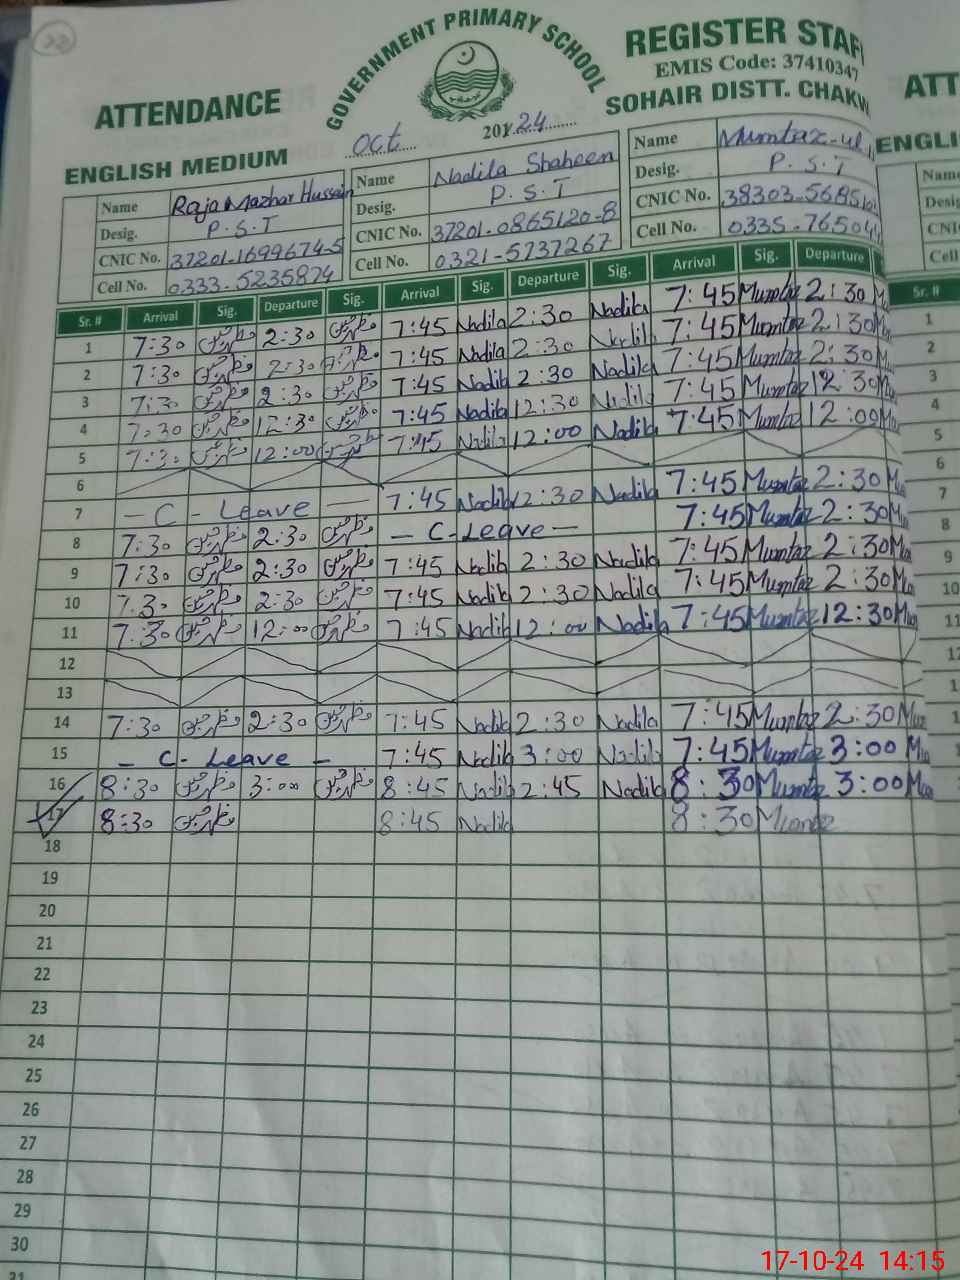 GOVERNMENT PRIMARY SCHOOL
REGISTER STAF
EMIS Code: 37410347
ATTENDANCE
SOHAIR DISTT. CHAKW
ATT
ENGLISH MEDIUM
Oct 2024
ENGLI
Name Raja Mazhar Hussain Name Nadila Shaheen Name Mumtaz-ul
Desig. P.S.T Desig. P.S.T Desig. P.S.T
CNIC No. 37201-1699674-5 CNIC No. 37201-0865120-8 CNIC No. 38303-5685
Cell No. 0333-5235874 Cell No. 0321-5737267 Cell No. 0335-76504
Name
Desig
CNI
Cell
Sr. # Arrival Sig. Departure Sig. Arrival Sig. Departure Sig. Arrival Sig. Departure Sr. #
1 7:30 2:30 7:45 Nadila 2:30 Nadila 7:45 Mumtaz 2:30 1
2 7:30 2:30 7:45 Nadila 2:30 Nadila 7:45 Mumtaz 2:30 2
3 7:30 2:30 7:45 Nadila 2:30 Nadila 7:45 Mumtaz 2:30 3
4 7:30 12:30 7:45 Nadila 12:30 Nadila 7:45 Mumtaz 12:30 4
5 7:30 12:00 7:45 Nadila 12:00 Nadila 7:45 Mumtaz 12:00 5
6 6
7 - C - Leave - 7:45 Nadila 2:30 Nadila 7:45 Mumtaz 2:30 7
8 7:30 2:30 - C-Leave - 7:45 Mumtaz 2:30 8
9 7:30 2:30 7:45 Nadila 2:30 Nadila 7:45 Mumtaz 2:30 9
10 7:30 2:30 7:45 Nadila 2:30 Nadila 7:45 Mumtaz 2:30 10
11 7:30 12:00 7:45 Nadila 12:00 Nadila 7:45 Mumtaz 12:30 11
12
13
14 7:30 2:30 7:45 Nadila 2:30 Nadila 7:45 Mumtaz 2:30
15 - C - Leave - 7:45 Nadila 3:00 Nadila 7:45 Mumtaz 3:00
16 8:30 3:00 8:45 Nadila 2:45 Nadila 8:30 Mumtaz 3:00
17 8:30 8:45 Nadila 8:30 Mumtaz
18
19
20
21
22
23
24
25
26
27
28
29
30
31
17-10-24 14:15